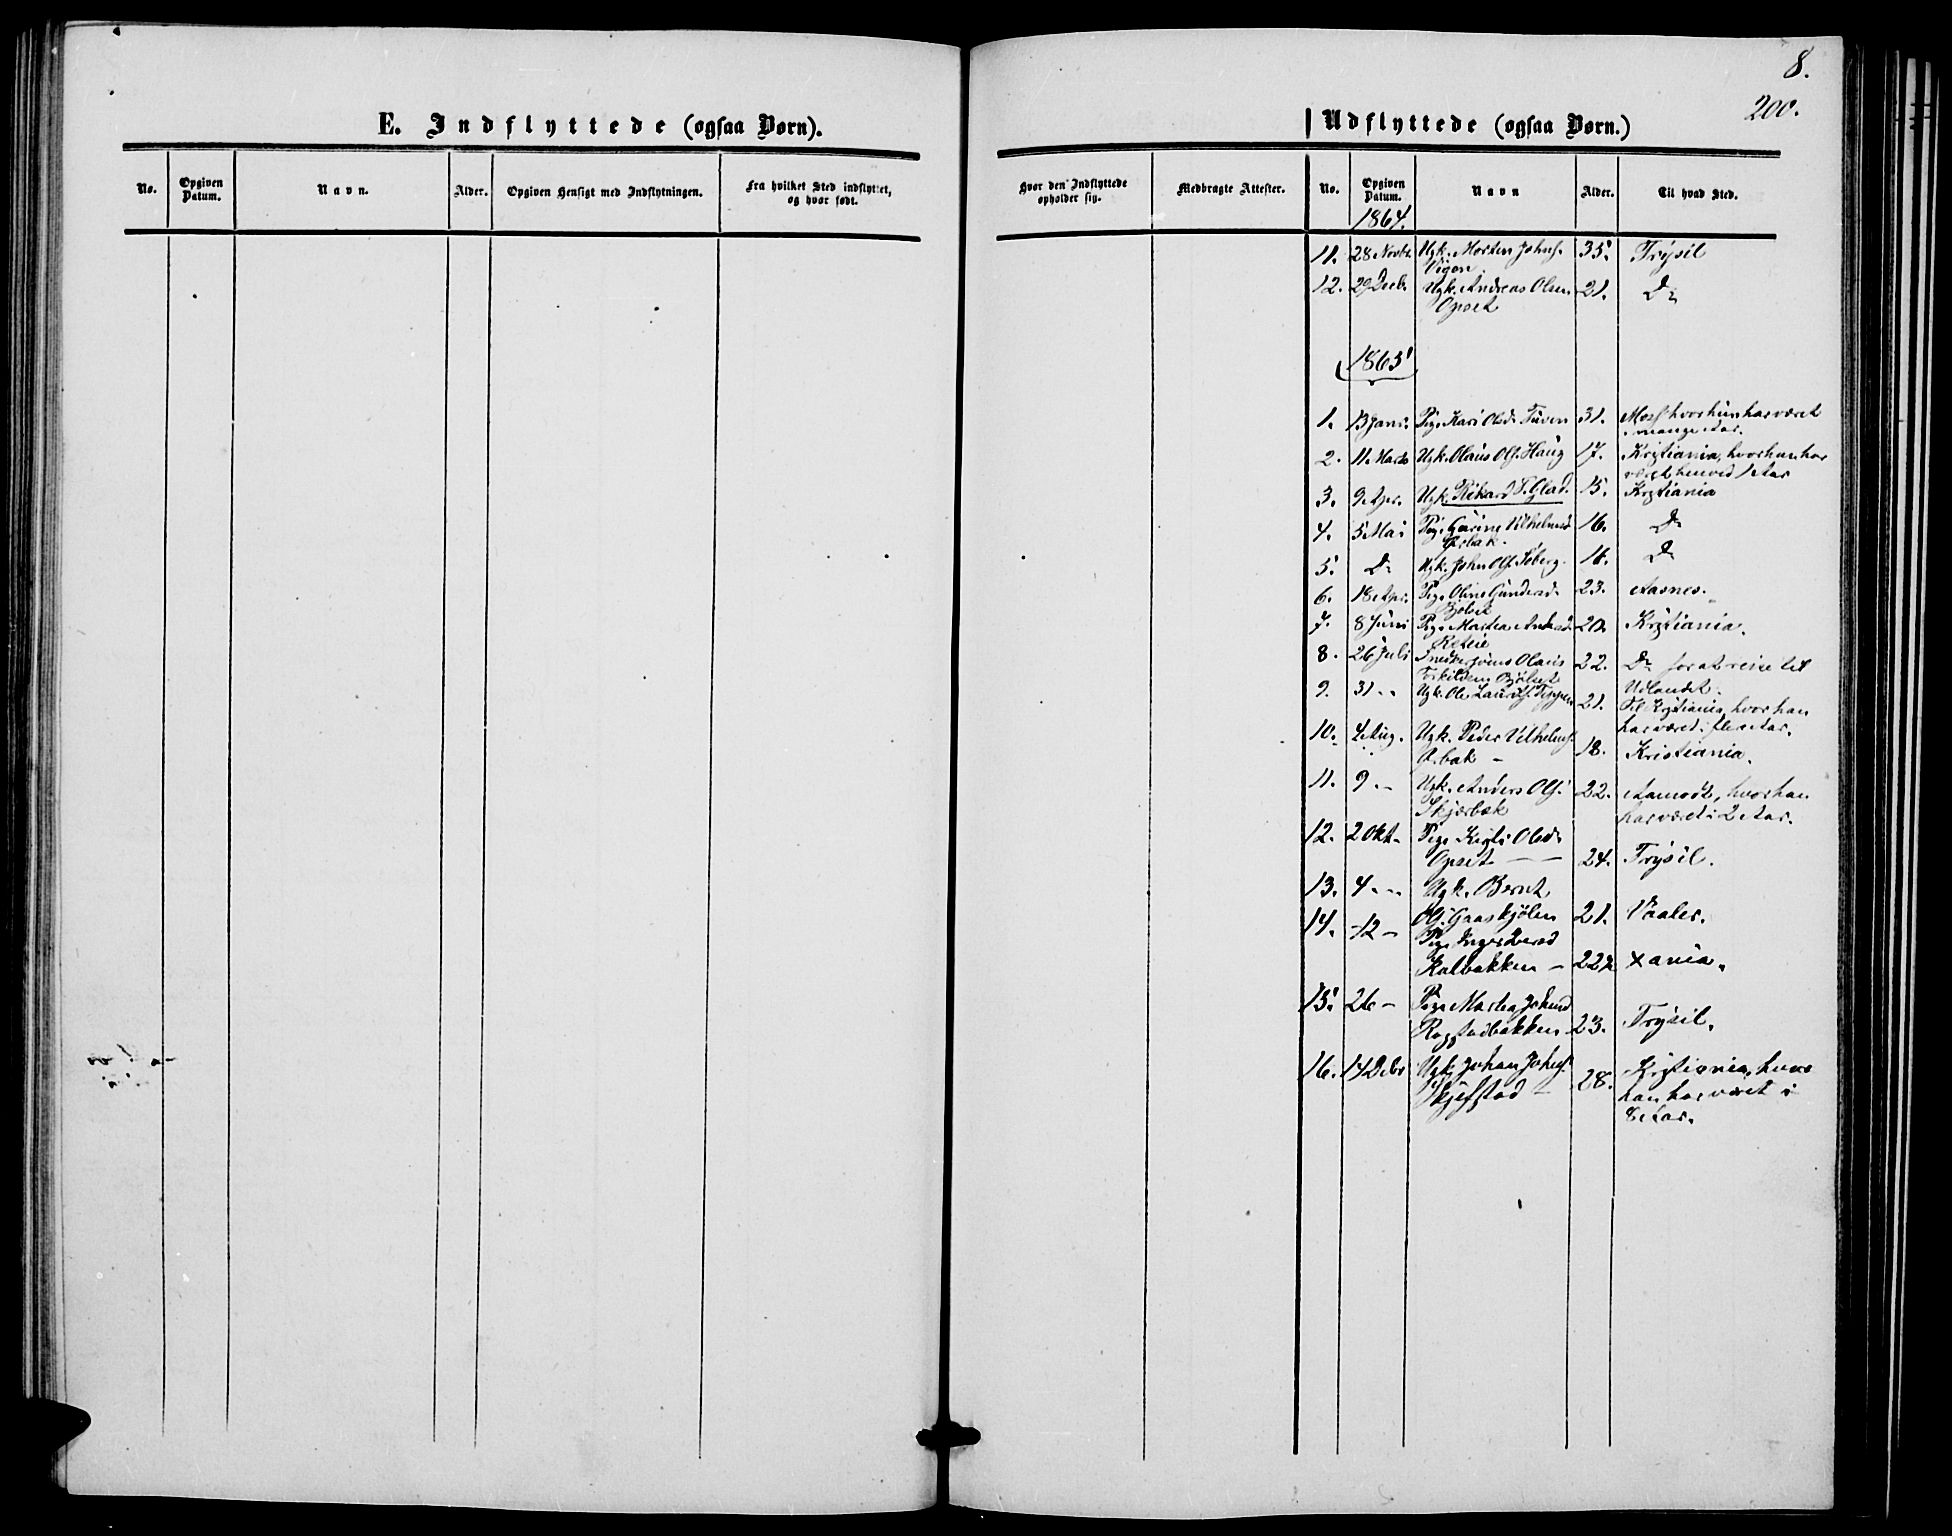 8.
200.
E. Indflyttede (ogsaa Børn).
Udflyttede (ogsaa Børn.)
No. Opgiven Datum. Navn. Alder. Opgiven Hensigt med Indflytningen. Fra hvilket Sted indflyttet, og hvor født.
Hvor den Indflyttede opholder sig. Medbragte Attester. No. Opgiven Datum. Navn Alder. Til hvad Sted.
1864.
11. 28 Novbr. Ugk. Morten Johns. 35. Trysil
12. 29 Decb. Ugk. Andreas Olsen 21. Do
Opset
1865
1. 13 Janr. Pige Kari Olsd. Tuven 31. Moss hvor hun har været
i mange Aar.
2. 11. Marts Ugk. Olaus Ols. Haug 17. Kristiania, hvor han har
været henved 1 Aar
3. 9 Apr. Ugk. Rikard T. Glad. 15. Kristiania
4. 5 Mai Pige Vilhelmsd. 16. Do
5. Do Ugk. John Ols. 16. Do
6. 18 Apr. Pige Oline Gundersd. 23. Aasnes.
Bjølset
7. 8 Juni Pige Martea 20. Kristiania.
8. 26 Juli Olaus 22. Do for at reise til
Bjølset Udlandet.
9. 31 - - Ugk. Ole Laurits. 21. Til Kristiania, hvor han
har været i flere Aar.
10. 4 Aug. Ugk. Peder Vilhelms. 18. Kristiania.
11. 9 - - Ugk. Anders Ols. 22. Aamodt, hvor han
Skjærbæk har været i 2 Aar.
12. 2 Okt - Pige Olsd.
Opset - - 24. Trysil.
13. 4 - - Ugk. Bernt
Ols. Gaaskjølen 21. Vaaler.
14. 12 - Pige Inger
Kalbakken - 22 Xania.
15. 26 - Pige Martea Johnsd
Rogstadbakken 23. Trysil.
16. 14 Debr Ugk. Johan Johns.
Skjefstad - 28. Kristiania, hvor
han har været i
8 Aar.